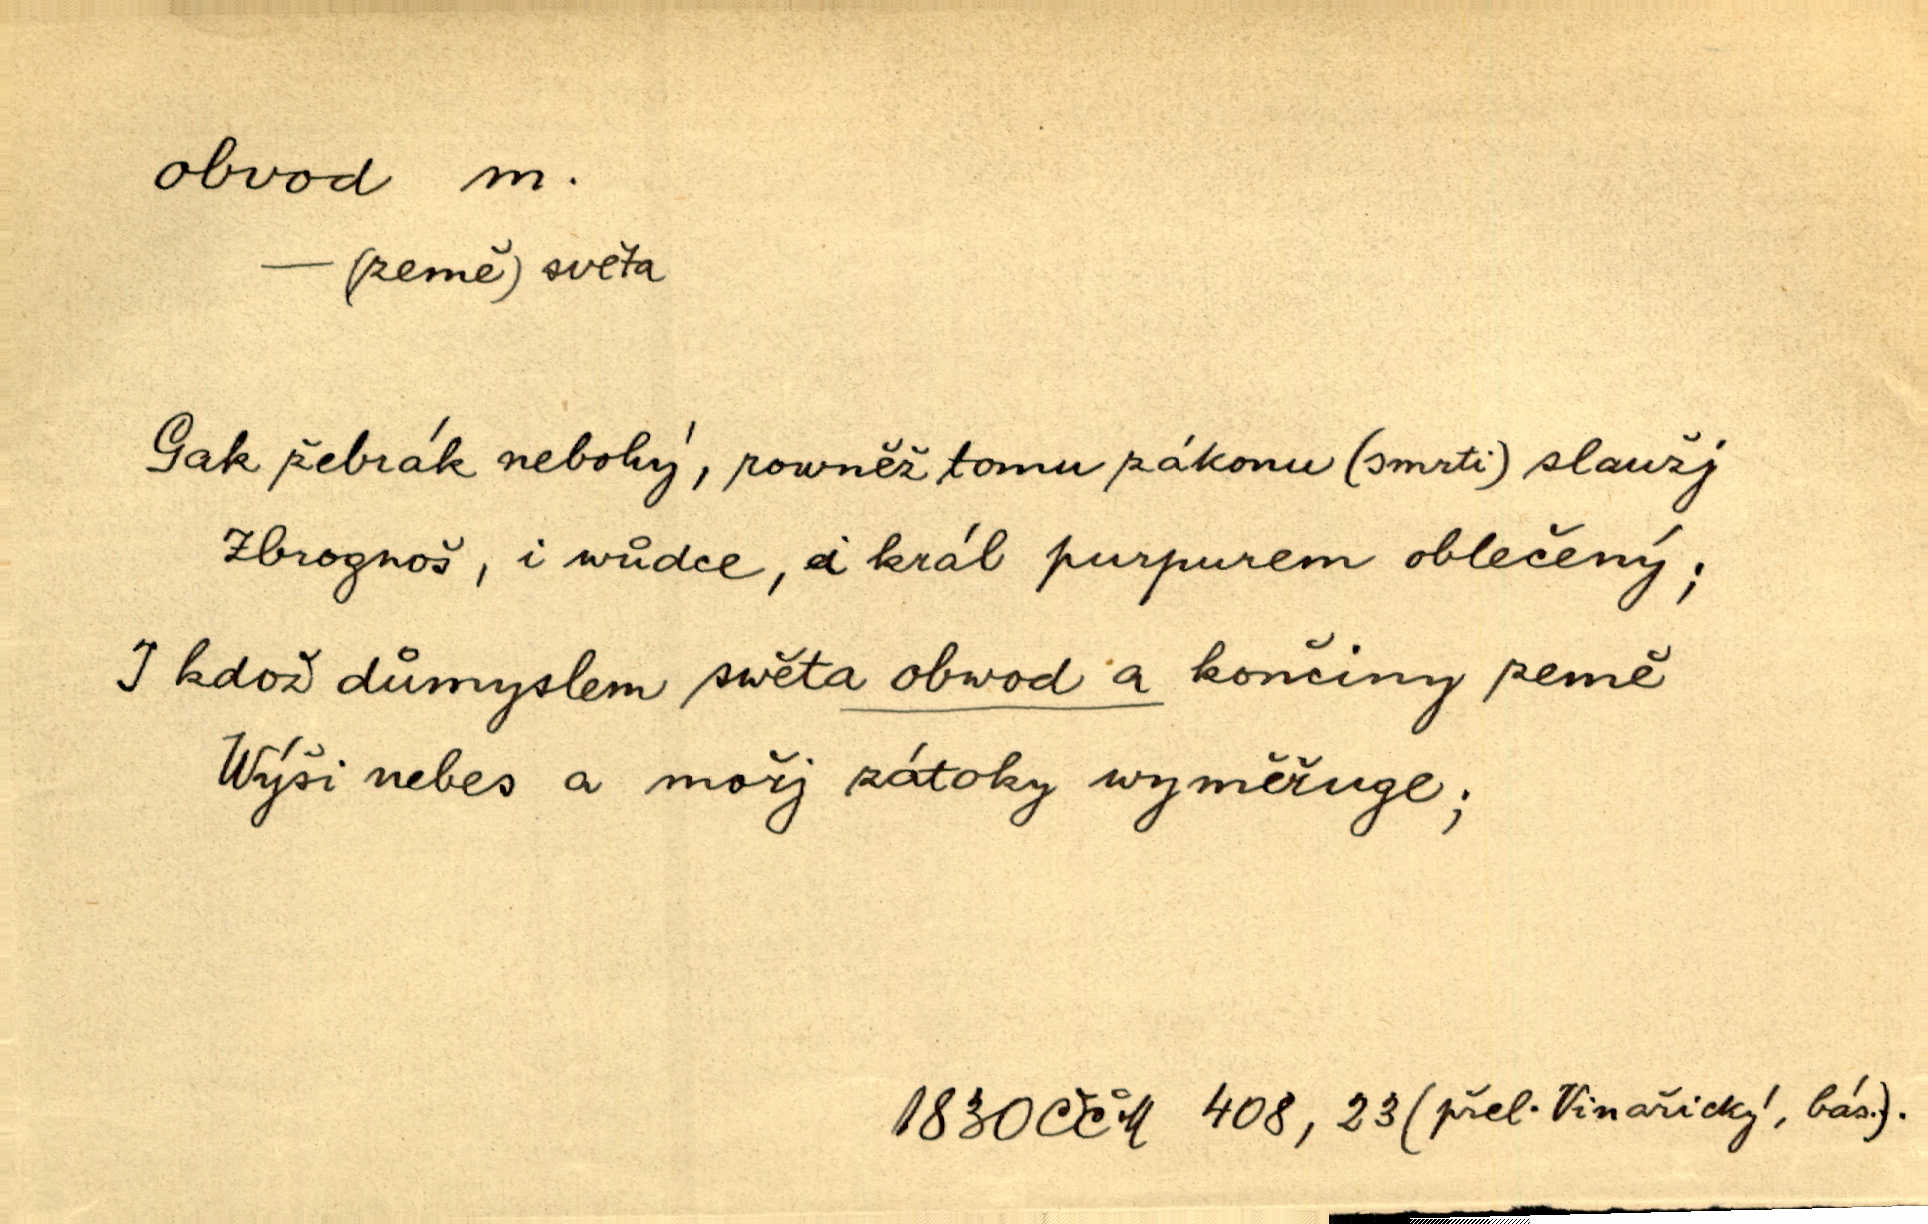 obvod m.
— (země) světa
Gak žebrák nebohý, rowněž tomu zákonu (smrti) slaužj
Zbrognoš, i wůdce, i král purpurem oblečený;
I kdož důmyslem swěta obwod a končiny země
Wýši nebes a mořj zátoky wyměřuge;
1830 ČČM 408, 23 (přel. Vinařický, bás.).